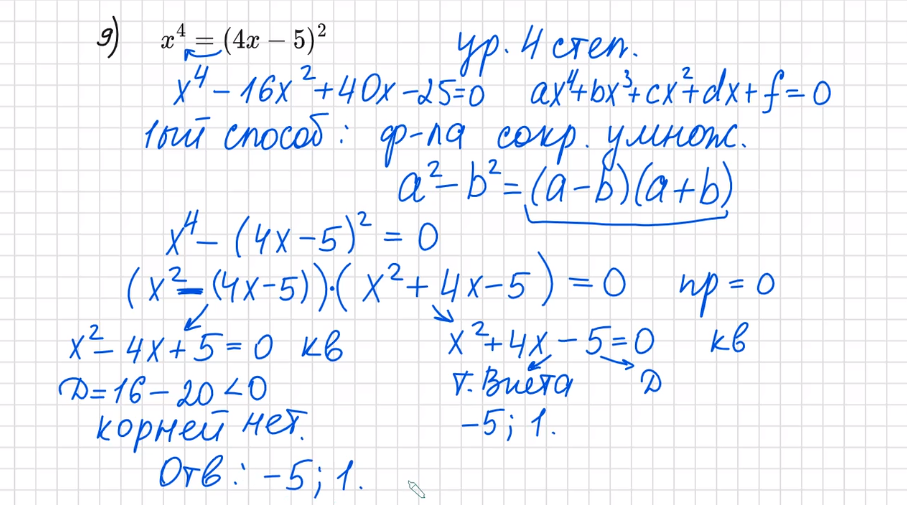 9) x⁴ = (4x − 5)² ур. 4 степ.
x⁴ − 16x² + 40x − 25 = 0 ax⁴ + bx³ + cx² + dx + f = 0
1ый способ: ф-ла сокр. умнож.
a² − b² = (a − b)(a + b)
x⁴ − (4x − 5)² = 0
(x² − (4x − 5))·(x² + 4x − 5) = 0 пр = 0
x² − 4x + 5 = 0 кв x² + 4x − 5 = 0 кв
D = 16 − 20 < 0 т. Виета D
корней нет. −5; 1.
Отв: −5; 1.